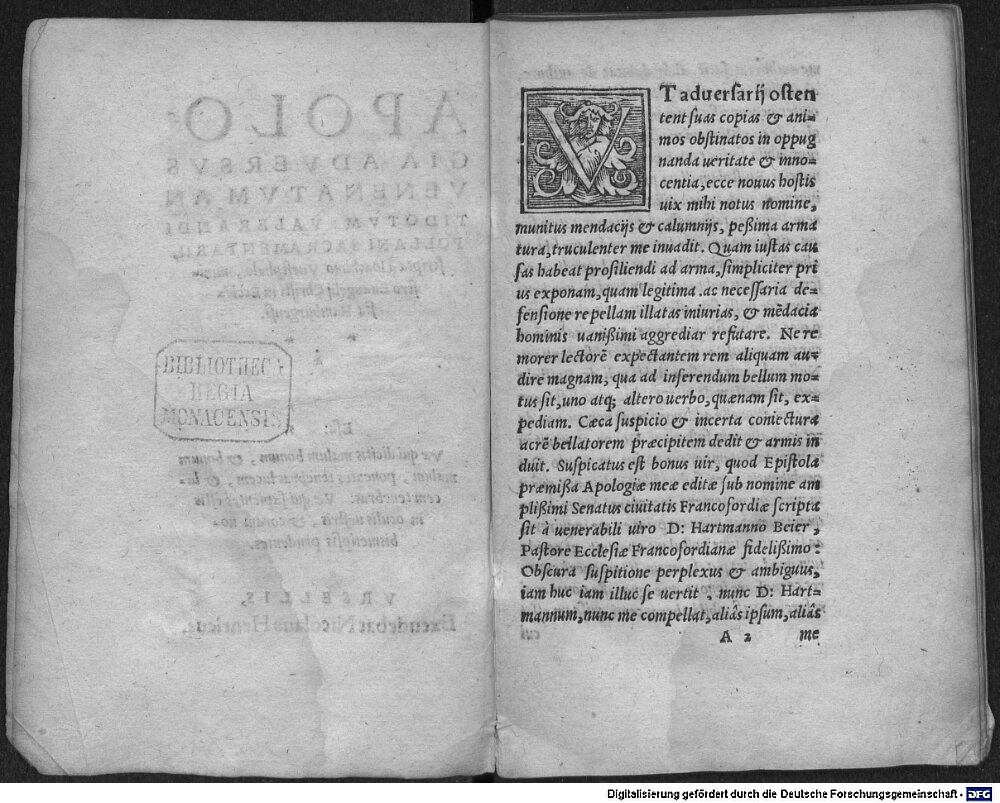 BIBLIOTHECA
REGIA
MONACENSIS
VT aduersarij osten
tent suas copias & ani=
mos obstinatos in oppug
nanda ueritate & inno=
centia, ecce nouus hostis
uix mihi notus nomine,
munitus mendacijs & calumnijs, peßima arma
tura, truculenter me inuadit. Quam iustas cau
sas habeat prosiliendi ad arma, simpliciter pri
us exponam, quam legitima ac necessaria de=
fensione repellam illatas iniurias, & mẽdacia
hominis uanißimi aggrediar refutare. Ne re
morer lectorẽ expectantem rem aliquam au=
dire magnam, qua ad inferendum bellum mo=
tus sit, uno atq; altero uerbo, quænam sit, ex=
pediam. Cæca suspicio & incerta coniectura
acrẽ bellatorem præcipitem dedit & armis in
duit. Suspicatus est bonus uir, quod Epistola
præmißa Apologiæ meæ editæ sub nomine am
plißimi Senatus ciuitatis Francofordiæ scripta
sit à uenerabili uiro D: Hartmanno Beier,
Pastore Ecclesiæ Francofordianæ fidelißimo:
Obscura suspitione perplexus & ambiguus,
iam huc iam illuc se uertit, nunc D: Hart=
mannum, nunc me compellat, aliâs ipsum, aliâs
A 2 me
Digitalisierung gefördert durch die Deutsche Forschungsgemeinschaft - DFG